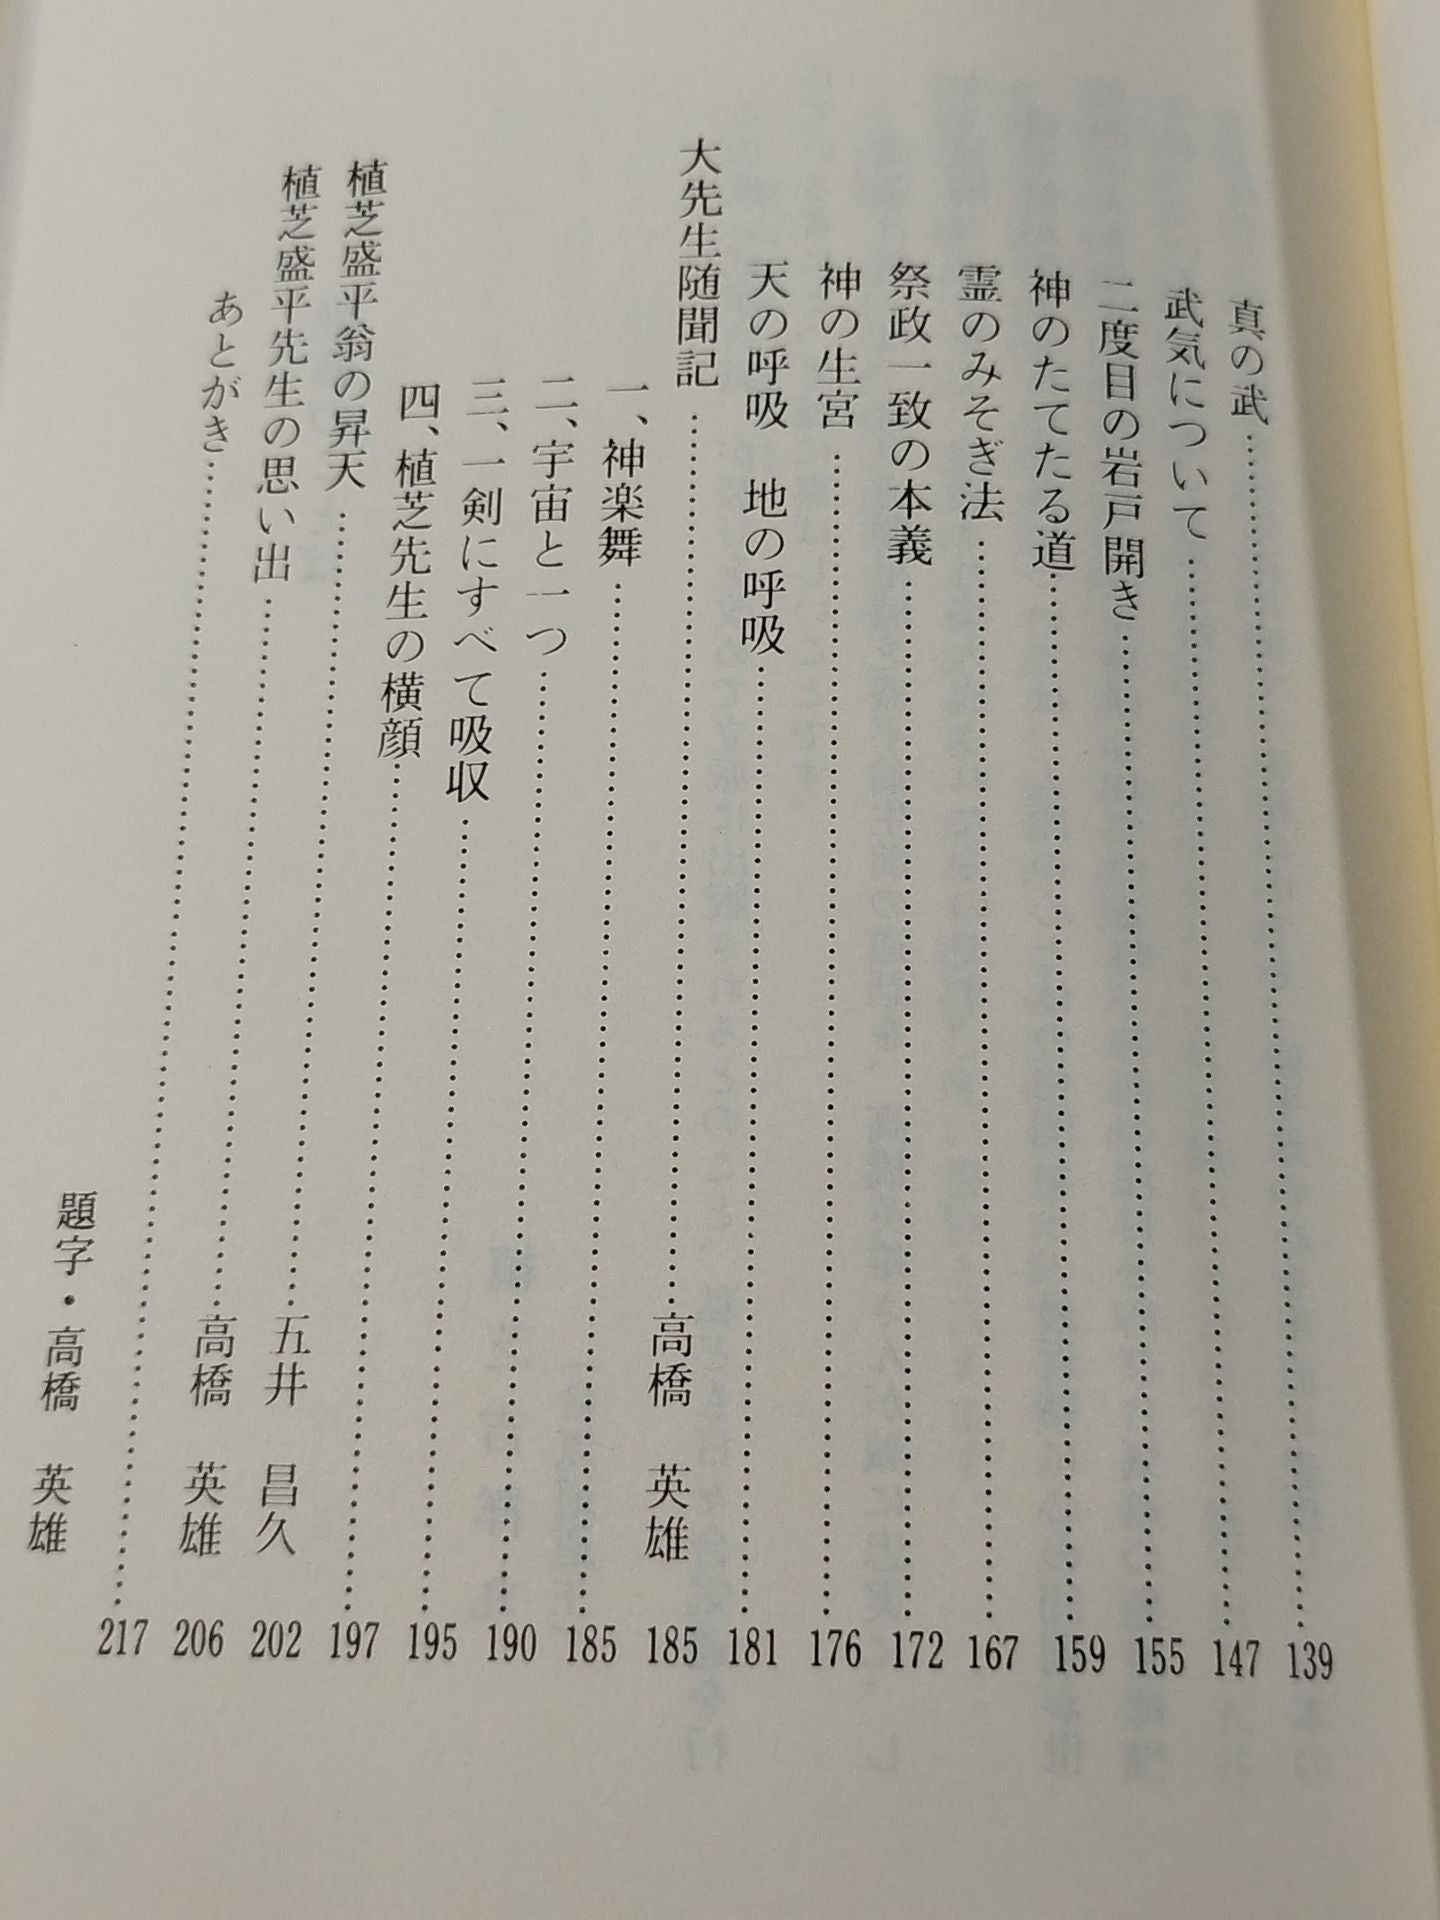 真の武……139
武気について……147
二度目の岩戸開き……155
神のたてたる道……159
霊のみそぎ法……167
祭政一致の本義……172
神の生宮……176
天の呼吸　地の呼吸……181
大先生随聞記……高橋　英雄　185
一、神楽舞……185
二、宇宙と一つ……190
三、一剣にすべて吸収……195
四、植芝先生の横顔……197
植芝盛平翁の昇天……五井　昌久　202
植芝盛平先生の思い出……高橋　英雄　206
あとがき……217
題字・高橋　英雄